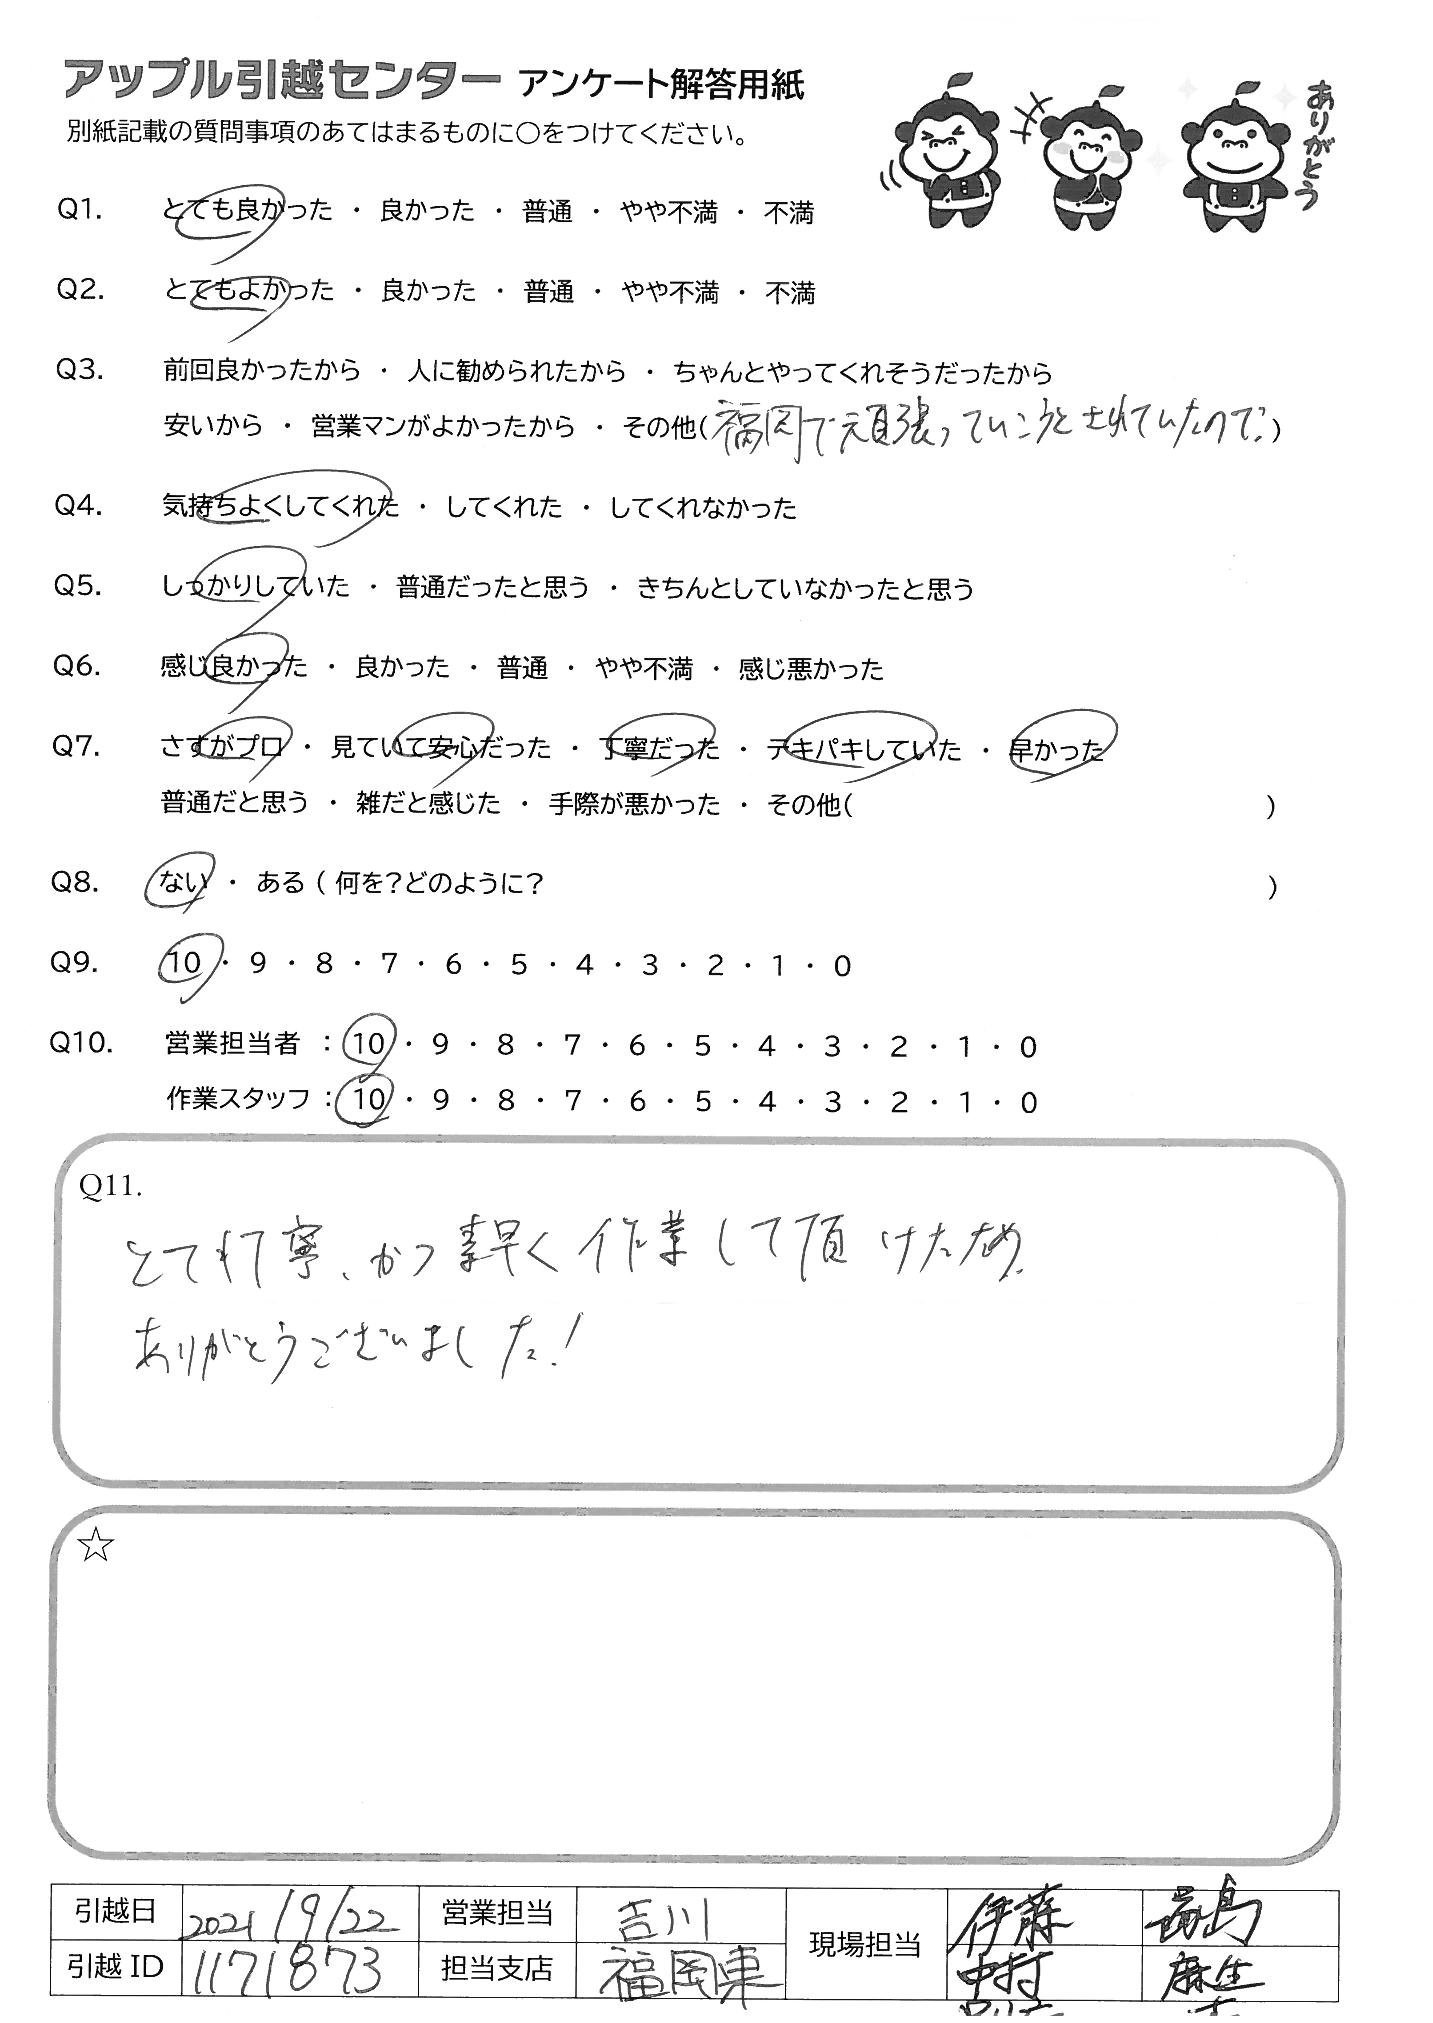 アップル引越センター アンケート解答用紙
ありがとう
別紙記載の質問事項のあてはまるものに〇をつけてください。
Q1. とても良かった ・ 良かった ・ 普通 ・ やや不満 ・ 不満
Q2. とてもよかった ・ 良かった ・ 普通 ・ やや不満 ・ 不満
Q3. 前回良かったから ・ 人に勧められたから ・ ちゃんとやってくれそうだったから
安いから ・ 営業マンがよかったから ・ その他(福岡で頑張っていこうとされていたので。)
Q4. 気持ちよくしてくれた ・ してくれた ・ してくれなかった
Q5. しっかりしていた ・ 普通だったと思う ・ きちんとしていなかったと思う
Q6. 感じ良かった ・ 良かった ・ 普通 ・ やや不満 ・ 感じ悪かった
Q7. さすがプロ ・ 見ていて安心だった ・ 丁寧だった ・ テキパキしていた ・ 早かった
普通だと思う ・ 雑だと感じた ・ 手際が悪かった ・ その他( )
Q8. ない ・ ある ( 何を?どのように? )
Q9. 10 ・ 9 ・ 8 ・ 7 ・ 6 ・ 5 ・ 4 ・ 3 ・ 2 ・ 1 ・ 0
Q10. 営業担当者 : 10 ・ 9 ・ 8 ・ 7 ・ 6 ・ 5 ・ 4 ・ 3 ・ 2 ・ 1 ・ 0
作業スタッフ : 10 ・ 9 ・ 8 ・ 7 ・ 6 ・ 5 ・ 4 ・ 3 ・ 2 ・ 1 ・ 0
Q11.
とても丁寧、かつ素早く作業して頂けたため。
ありがとうございました!
☆
引越日 2021/9/22 営業担当 吉川 現場担当 伊藤
引越 ID 1171873 担当支店 福岡東 中村 麻生